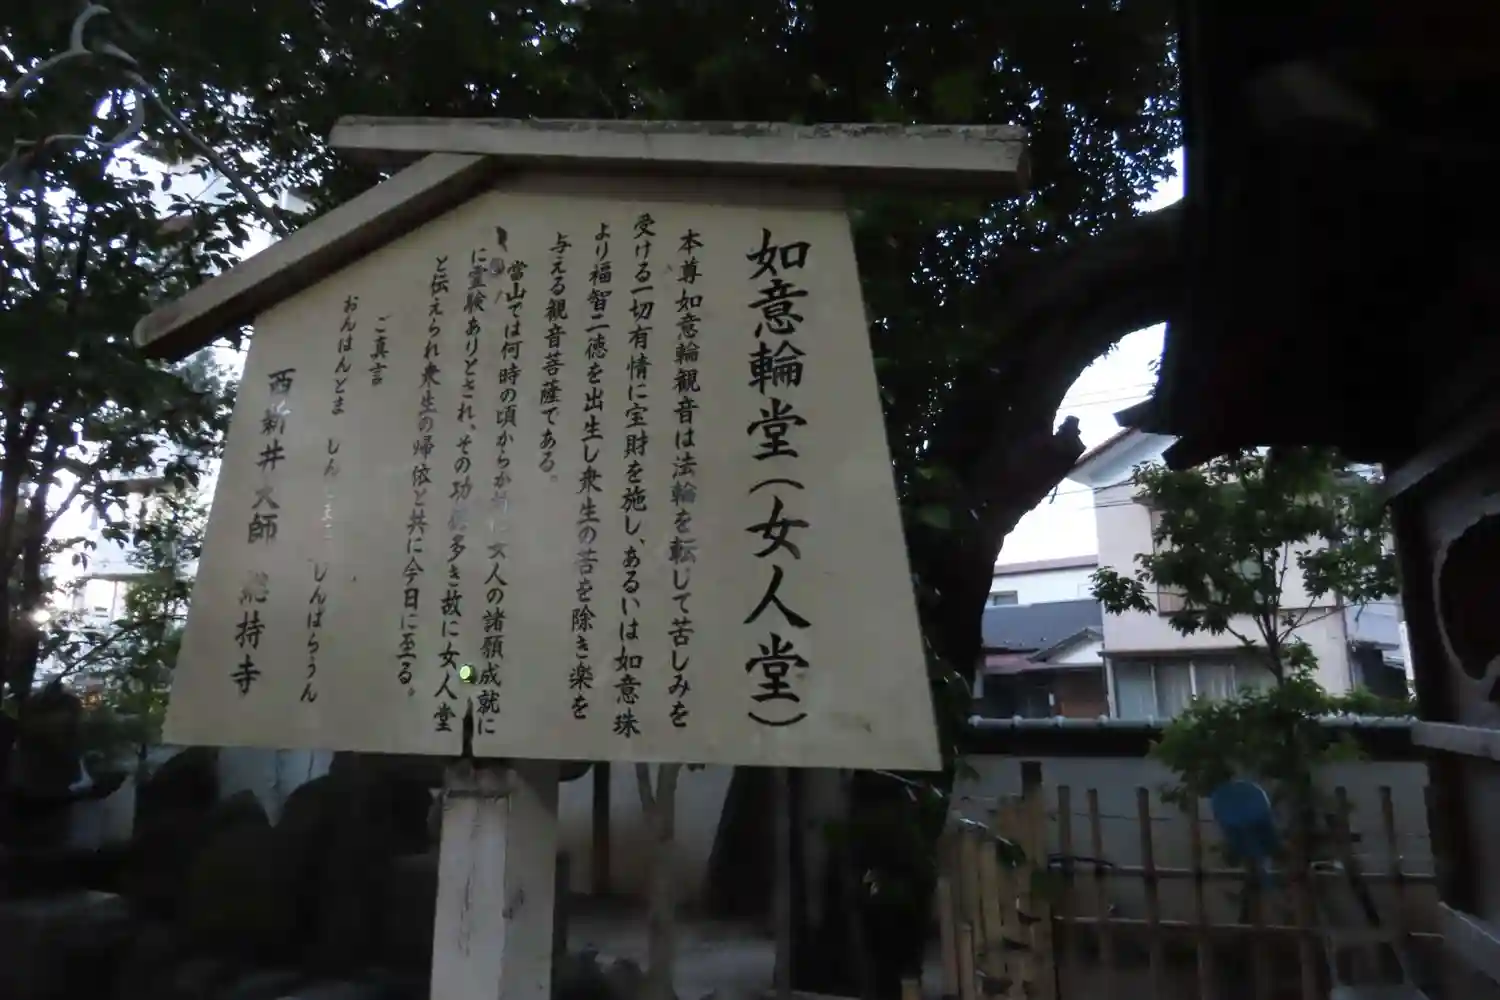 如意輪堂（女人堂）
本尊如意輪観音は法輪を転じて苦しみを
受ける一切有情に宝財を施し、あるいは如意珠
より福智二徳を出生し衆生の苦を除き楽を
与える観音菩薩である。
當山では何時の頃からか 女人の諸願成就に
に霊験ありとされ、その功 多き故に女人堂
と伝えられ衆生の帰依と共に今日に至る。
ご真言
おんはんどま しん じんばらうん
西新井大師 總持寺